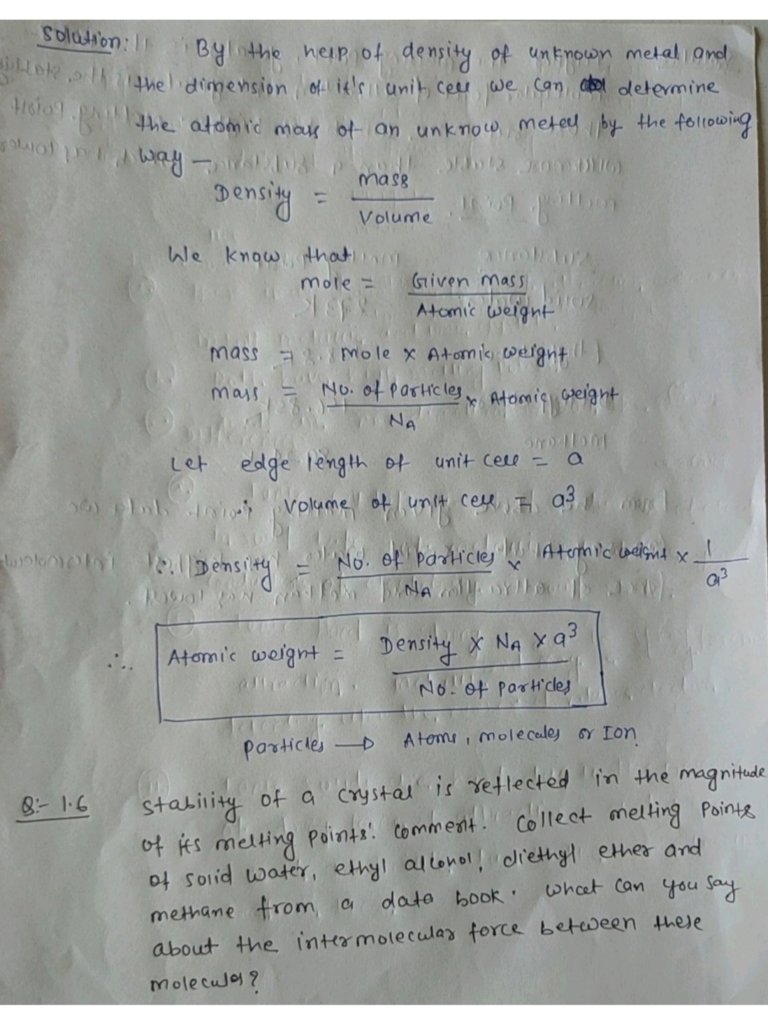 Solution: By the help of density of unknown metal and
the dimension of it's unit cell we can determine
the atomic mass of an unknow metel by the following
way —
Density = mass / Volume
We know that
mole = Given mass / Atomic weight
mass = mole x Atomic weight
mass = No. of Particles / NA x Atomic weight
Let edge length of unit cell = a
∴ volume of unit cell = a³
∴ Density = No. of Particles / NA x Atomic weight x 1 / a³
∴ Atomic weight = Density x NA x a³ / No. of Particles
Particles → Atoms, molecules or Ion
Q:- 1.6 Stability of a crystal is reflected in the magnitude
of its melting points'. Comment. Collect melting Points
of solid water, ethyl alcohol, diethyl ether and
methane from a data book. What can you say
about the intermolecular force between these
molecules?